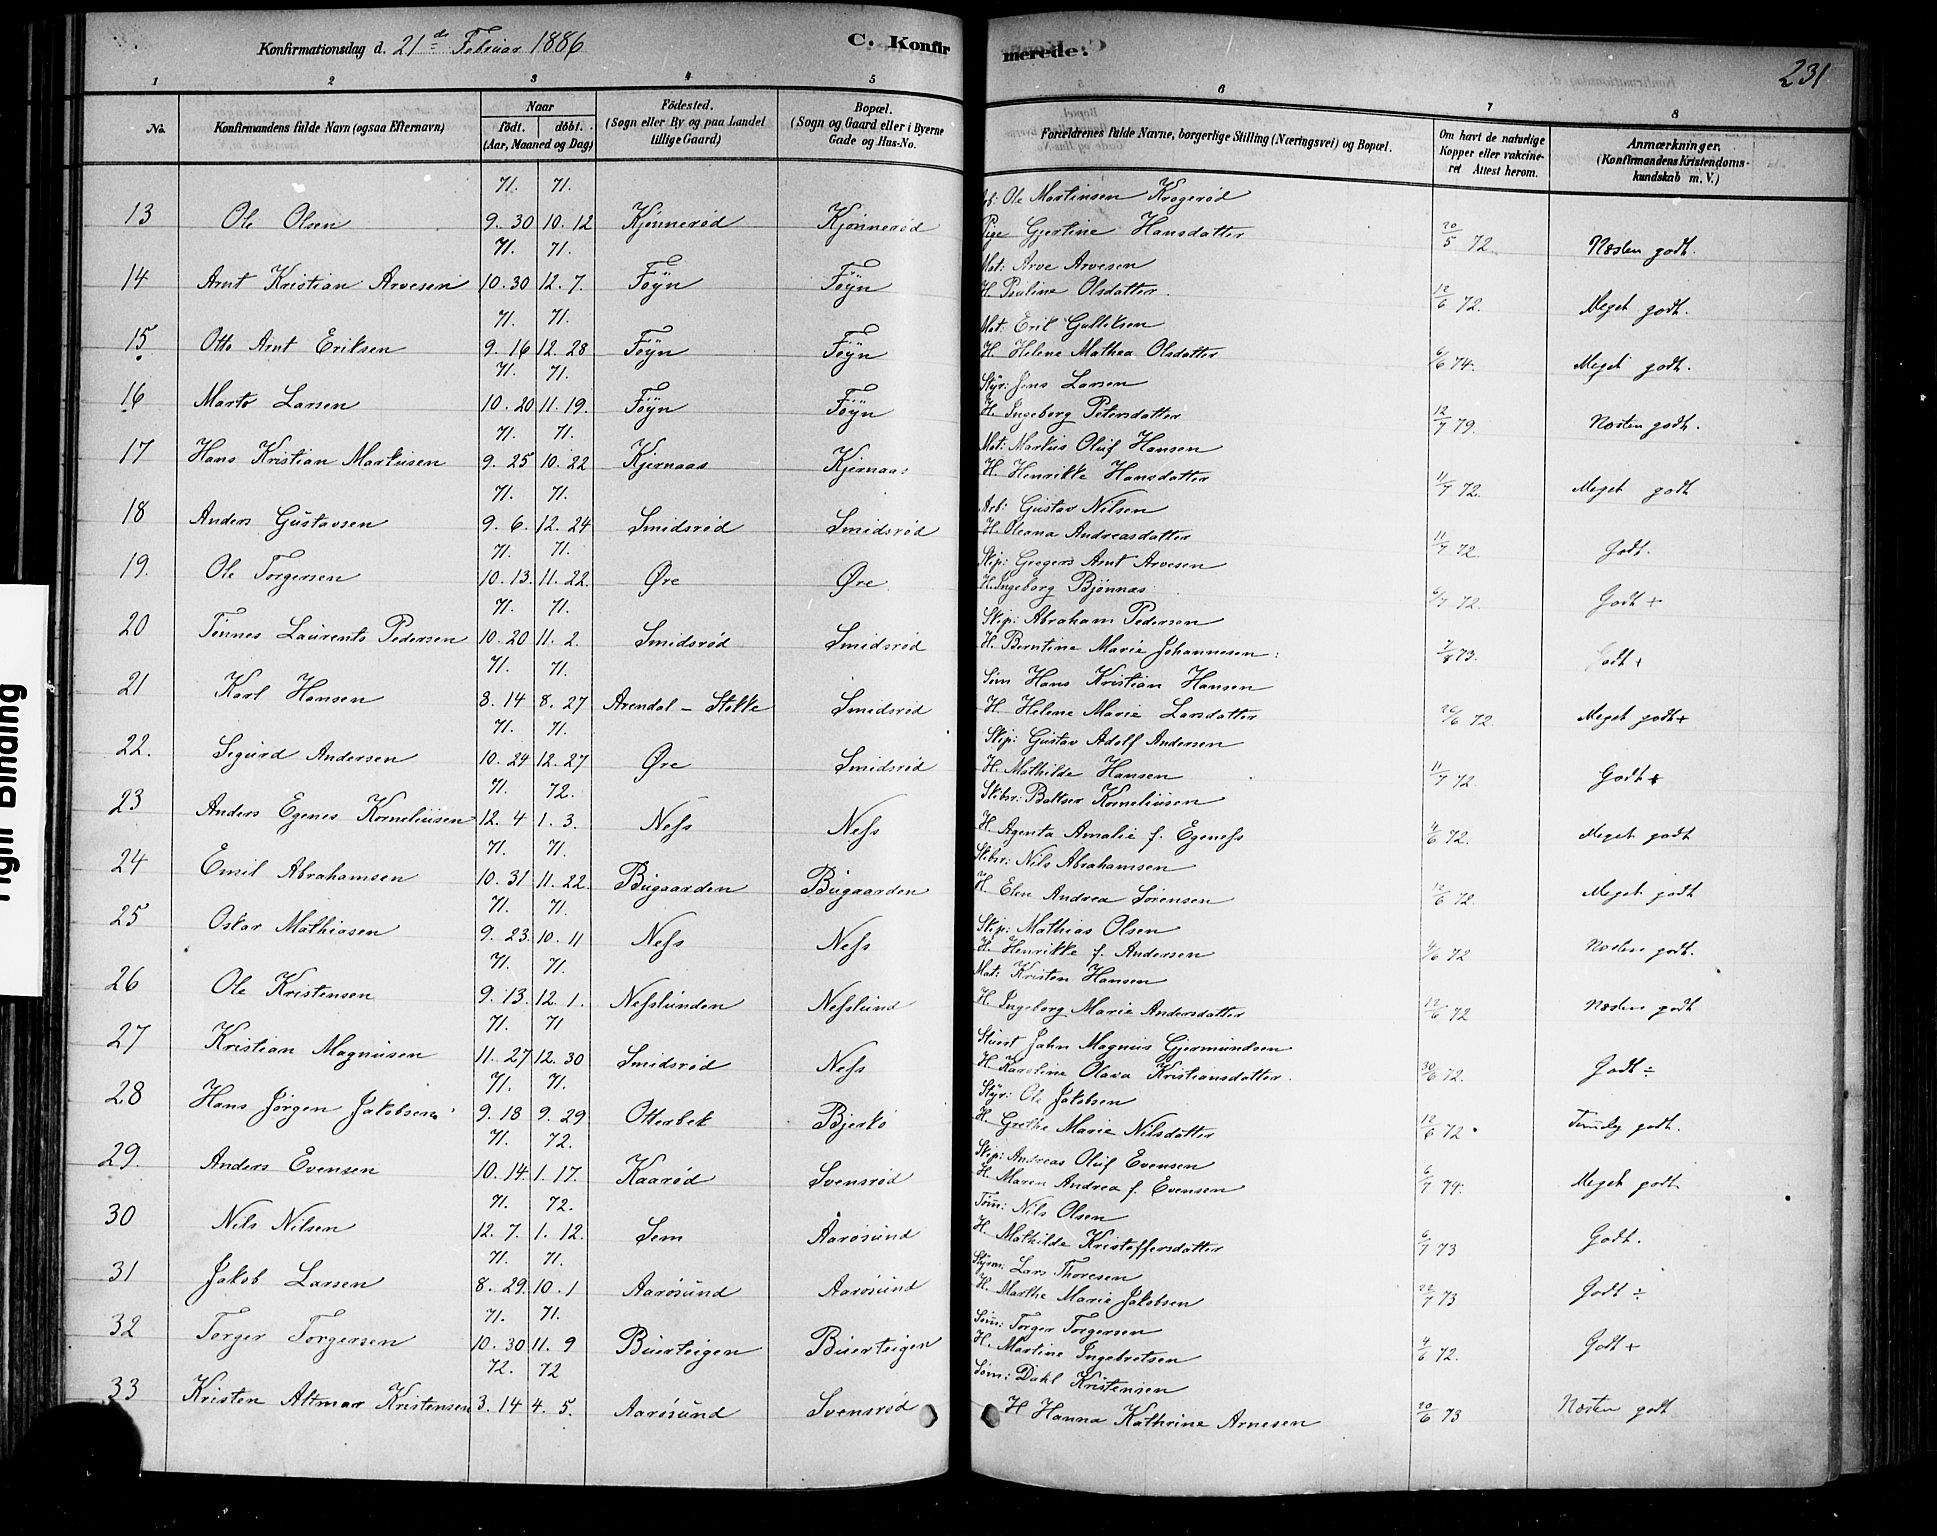 Konfirmationsdag d. 21de Februar 1886 C. Konfirmerede. 231
1 2 3 4 5 6 7 8
No. Konfirmandens fulde Navn (ogsaa Efternavn) Naar født. døbt. (Aar, Maaned og Dag) Födested. (Sogn eller By og paa Landet tillige Gaard) Bopæl. (Sogn og Gaard eller i Byerne Gade og Hus-No. Forældrenes fulde Navne, borgerlige Stilling (Næringsvei) og Bopæl. Om havt de naturlige Kopper eller vakcineret Attest herom. Anmærkninger. (Konfirmandens Kristendomskundskab m. V.)
71. 71. Ole Martinsen Krogerød
13 Ole Olsen 9. 30 10. 12 Kjønnerød Kjønnerød Pige Gjertine Hansdatter 20/5 72 Næsten godt.
71. 71. Mat: Arve Arvesen
14 Arnt Kristian Arvesen 10. 30 12. 7. Føyn Føyn H. Pauline Olsdatter. 12/6 72. Meget godt.
71. 71. Mat: Erik Gulliksen
15 Otto Arnt Eriksen 9. 16 12. 28 Føyn Føyn H. Helene Mathea Olsdatter 6/6 74. Meget godt.
71. 71. Styr: Jens Larsen
16 Larsen 10. 20 11. 19. Føyn Føyn H. Ingeborg Petersdatter 12/7 79. Næsten godt.
71. 71. Mat: Markus Oluf Hansen
17 Hans Kristian Markusen 9. 25 10. 22 Kjernaas Kjernaas H. Henrikke Hansdatter 11/7 72. Meget godt
71. 71. Arb: Gustav Nilsen
18 Anders Gustavsen 9. 6. 12. 24 Smidsrød Smidsrød H. Oleana Andreasdatter 11/7 72 Godt.
71. 71. Skip: Gregers Arnt Arvesen
19. Ole Torgersen 10. 13. 11. 22 Øre Øre H. Ingeborg Bjønnas 6/7 72. Godt +
71. 71. Skip: Abraham Pedersen
20 Tønnes Laurents Pedersen 10. 20 11. 2. Smidsrød Smidsrød H. Berntine Marie Johannesen: 73. Godt +
71. 71. Søm Hans Kristian Hansen
21 Karl Hansen 3. 14 8. 27 Arendal - Stokke Smidsrød H. Helene Marie Larsdatter 26/6 72 Meget godt +
71. 71. Skip: Gustav Adolf Andersen
22. Sigurd Andersen 10. 24 12. 27 Øre Smidsrød H. Mathilde Hansen 11/7 72 Godt +
71. 72. Skibsr: Baltser Korneliusen
23 Anders Egenes Korneliusen 12. 4 1. 3. Ness Ness H. Agenta Amalie f. Egeness 4/6 72. Meget godt
71. 71. Skibsr: Nils Abrahamsen
24 Emil Abrahamsen 10. 31 11. 22. Bugaarden Bugaarden H. Elen Andrea Sørensen 12/6 72. Meget godt
71. 71. Skip: Mathias Olsen
25 Oskar Mathiasen 9. 23. 10. 11 Ness Ness H. Henrikke f. Andersen 4/6 72 Næsten godt.
71. 71. Mat: Kristen Hansen
26 Ole Kristensen 9. 13. 12. 1. Nesslunden Nesslund H. Ingeborg Marie Andersdatter 12/6 72 Næsten godt
71. 71 Stuert John Magnus Gjermundsen
27 Kristian Magnusen 11. 27 12. 30 Smidsrød Ness H. Karoline Olava Kristiansdatter. 30/6 72. Godt ÷
71. 71. Styr: Ole Jakobsen
28 Hans Jørgen Jakobsen 9. 18 9. 29 Otterbek Bjerkø H. Grethe Marie Nilsdatter 12/6 72. Temmelig godt.
71. 72. Skip: Andreas Oluf Evensen
29. Anders Evensen 10. 14. 1. 17. Kaarød Svensrød H. Maren Andrea f. Evensen 6/7 74. Meget godt
71. 72. Tøm: Nils Olsen
30 Nils Nilsen 12. 7. 1. 12. Sem Aarøsund H. Mathilde Kristoffersdatter 6/7 73 Godt.
71. 71. Styrm: Lars Thoresen
31 Jakob Larsen 8. 29. 10. 1 Aarøsund Aarøsund H. Marthe Marie Jakobsen 22/7 73 Godt ÷
71. 71. Søm: Torger Torgersen
32 Torger Torgersen 10. 30 11. 9 Buerteigen Buerteigen H. Martine Ingebretsen 4/6 72. Godt +
72. 72 Søm: Dahl Kristensen
33 Kristen Altmar Kristensen 3. 14 4. 5. Aarøsund Svensrød H Hanna Kathrine Arnesen 20/6 73 Næsten godt
Tight Binding